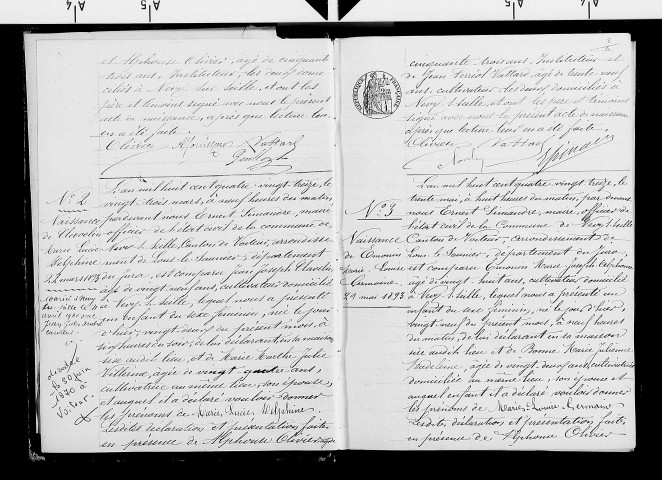 et Alphonse Olivier, agé de cinquante
trois ans, Instituteur, les deux domi
ciliés à Nevy sur Seille, et ont les
père et témoins signé avec nous le présent
acte de naissance, après que lecture leur
en a été faite.
Olivier Vattard
N° 2
Naissance
de Clavelin
Marie Lucie
Delphine
22 mars 1893
L'an mil huit cent quatre-vingt treize, le
vingt trois mars, à neuf heures du matin,
pardevant nous Ernest Simandre, maire
officier de l'état civil de la commune de
Nevy s. Seille, Canton de Voiteur, arrondisse
ment de Lons-le-Saunier, département
du Jura, est comparu Jean Joseph Clavelin,
agé de vingt neuf ans, cultivateur domicilié
à Nevy s. Seille, lequel nous a présenté
un enfant du sexe féminin, né le jour
d'hier, vingt-deux du présent mois, à
cinq heures du soir, de lui déclarant en sa maison
sise audit lieu et de Marie Marthe Julie
agée de vingt quatre ans,
cultivatrice au même lieu, son épouse,
et auquel il a déclaré vouloir donner
les prénoms de Marie, Lucie, Delphine.
Lesdites déclaration et présentation faites
en présence de Alphonse Olivier
décédée
le 30 juin
1970 à
Voiteur
cinquante trois ans, Instituteur et
de Jean Vattard, agé de trente neuf
ans, cultivateur, les deux domiciliés à
Nevy s. Seille, et ont les père et témoins
signé avec nous le présent acte de naissance
après que lecture leur en a été faite.
Olivier Vattard
RÉPUBLIQUE FRANÇAISE
N° 3
Naissance
de Omonin
Marie Louise
Germaine
29 mai 1893
L'an mil huit cent quatre-vingt treize, le
trente mai, à huit heures du matin, par devant
nous Ernest Simandre, maire, officier de
l'état civil de la Commune de Nevy s. Seille
Canton de Voiteur, arrondissement de
Lons le Saunier, département du Jura
est comparu Omonin Marie Joseph Alphonse
agé de vingt-huit ans, cultivateur domicilié
à Nevy s. Seille, lequel nous a présenté un
enfant du sexe féminin, né le jour d'hier,
vingt-neuf du présent mois, à neuf heures
du matin, de lui déclarant en sa maison
sise audit lieu et de Bonne Marie Julienne
Madeleine, agée de vingt deux ans, cultivatrice
domiciliée au même lieu, son épouse et
auquel enfant il a déclaré vouloir donner
les prénoms de Marie, Louise Germaine
Lesdites déclaration et présentation faites
en présence de Alphonse Olivier